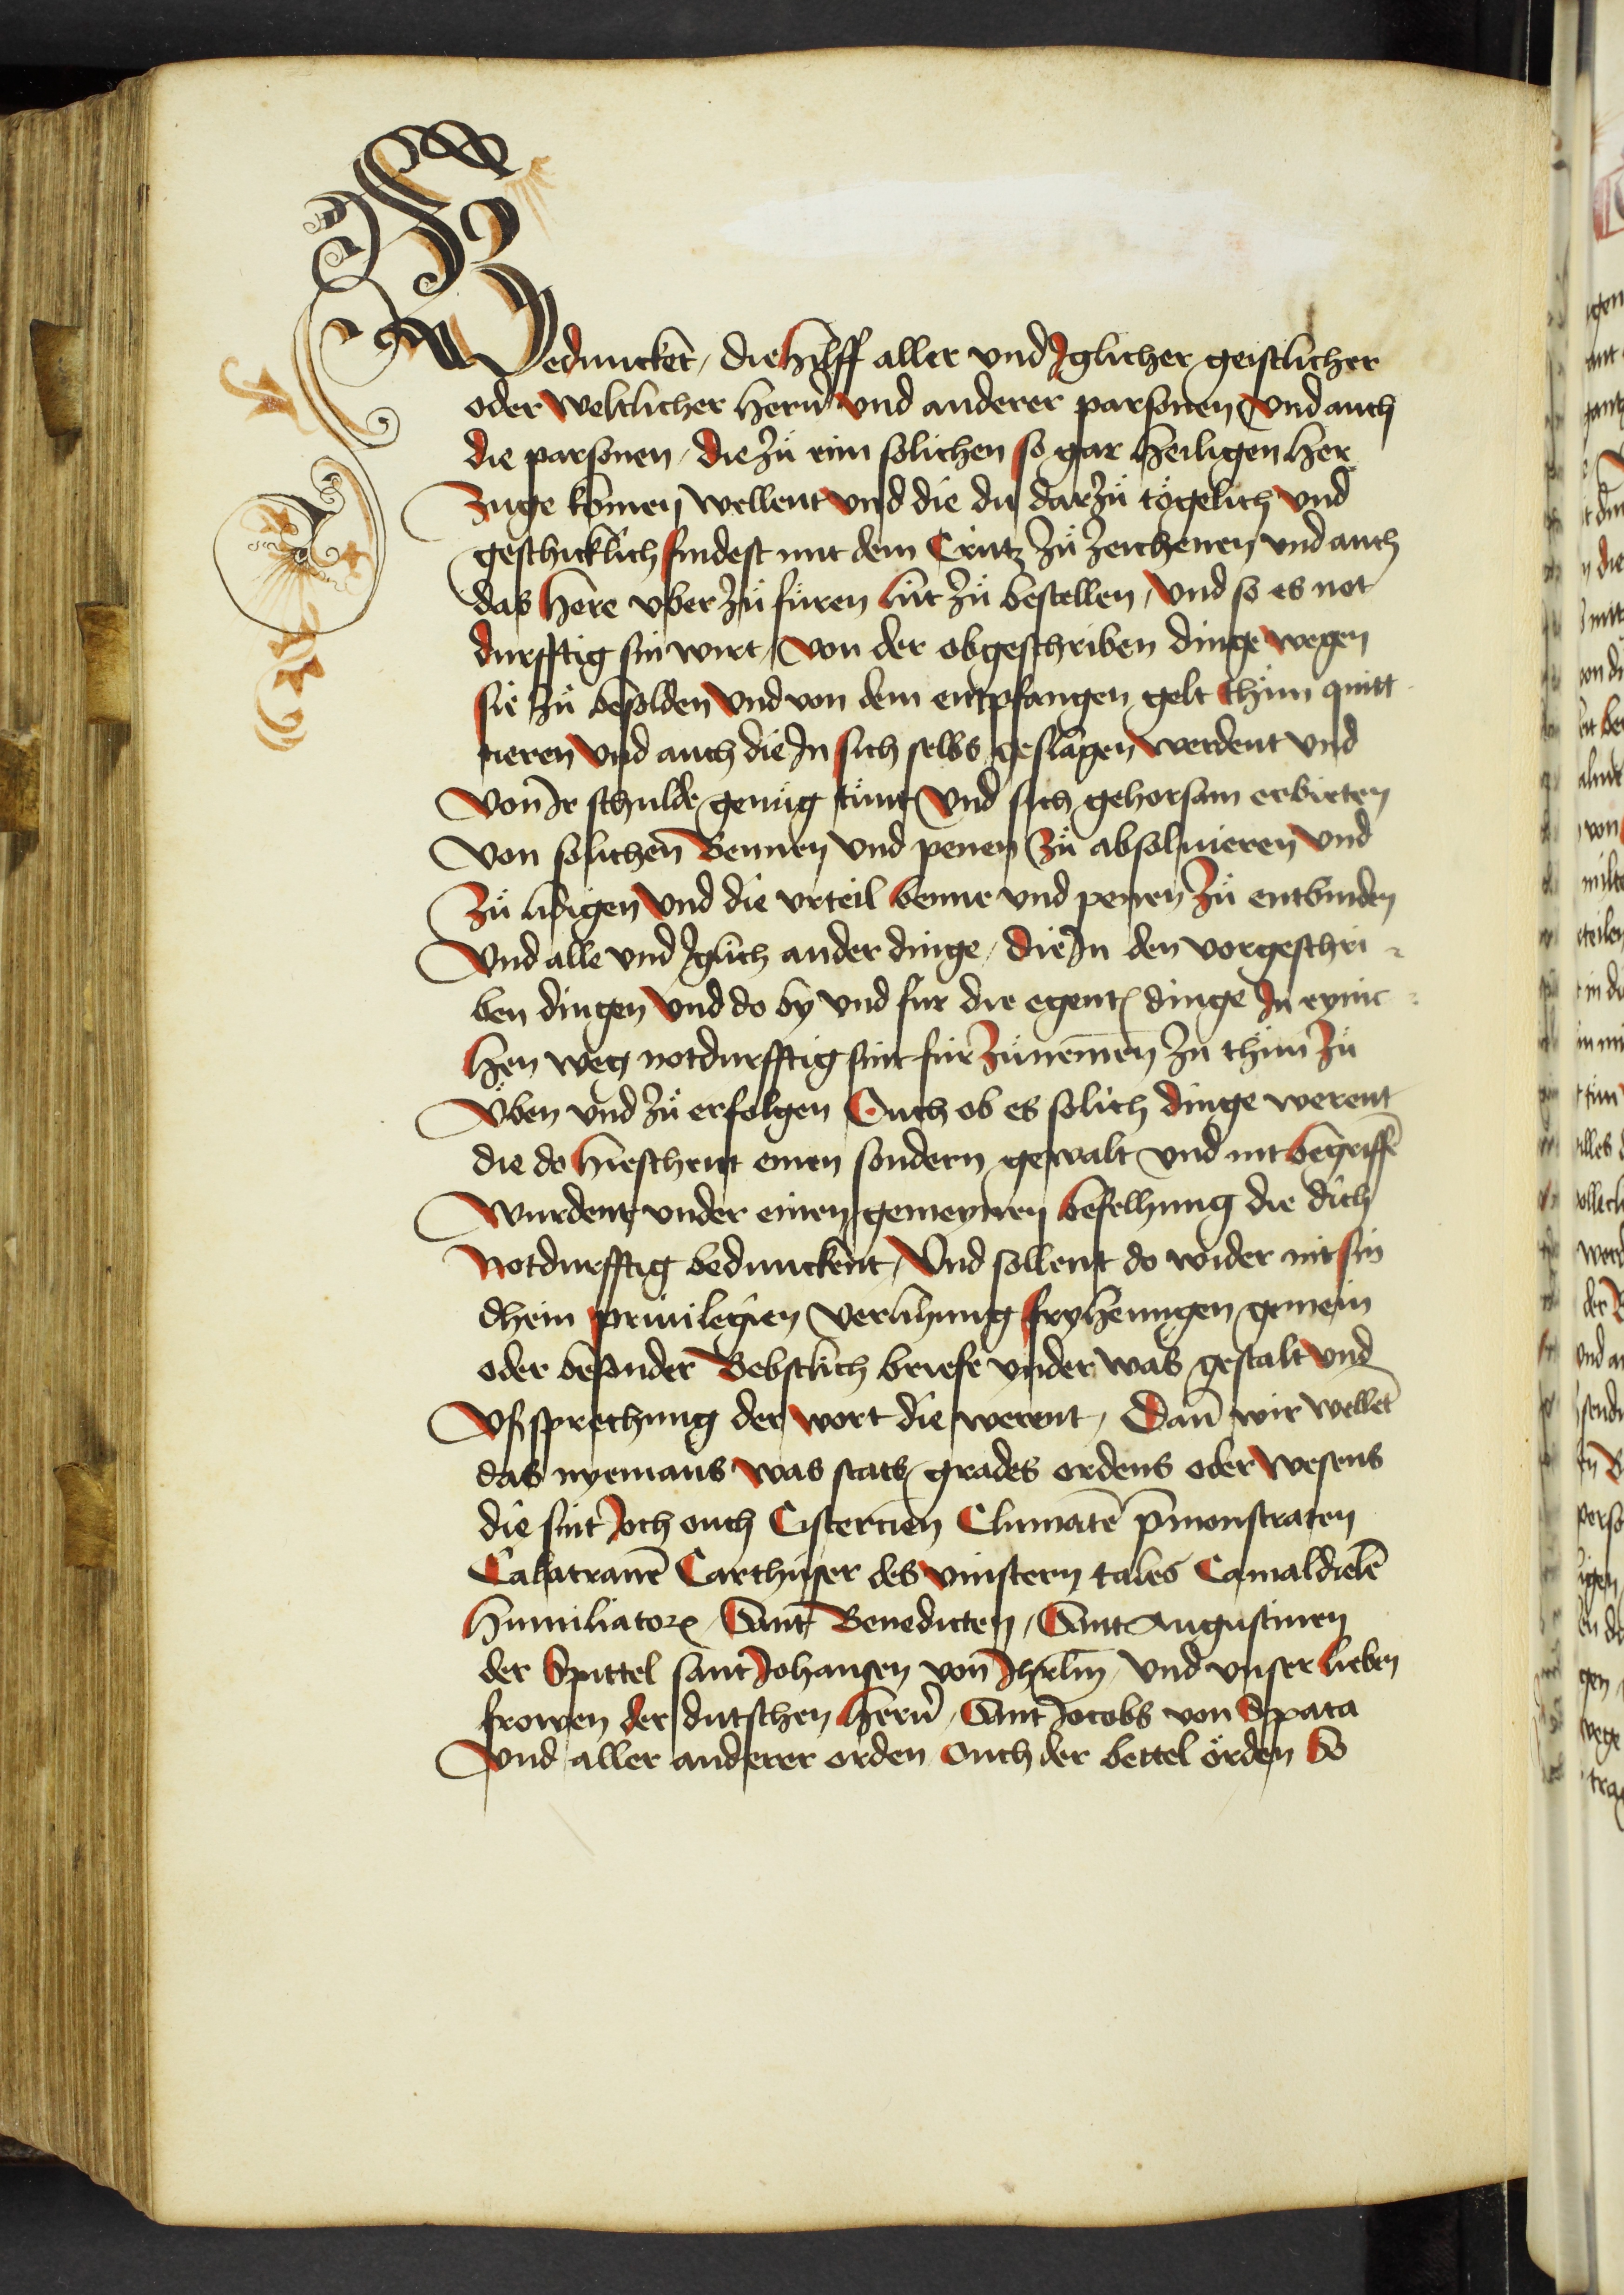 Beduncket, die hilff aller vnd Jglicher geistlicher
oder weltlicher hern̄ vnd anderer parsonen vnd auch
die parsonen, die zů eim solichen so gar heiligen her
zuge kōmen wellent vnd die du darzů tögelich vnd
geschicklich findest mit dem Crutz zů zeichenen vnd auch
das here vber zů füren lüt zů bestellen, vnd so es not
durfftig sin wirt, von der obgeschriben dinge wegen
sie zů besolden vnd von dem entpfangen gelt thůn quitt
tieren vnd auch die Jn sich selbs geslagen werdent vnd
von Jr schulde genůg tůnt vnd sich gehorsam erbieten
von solichen Bennen vnd penen zů absoluieren vnd
zů lidigen vnd die vrteil benne vnd penen zů entbinden
vnd alle vnd Jglich ander dinge, die Jn den vorgeschri
ben dingen vnd do by vnd für die egent dinge Jn eynic
hen weg notdurfftig sint für zůnem̄en zů thůn zů
vben vnd zů erfolgen Ouch ob es solich dinge werent
die do hieschent einen sondern gewalt vnd nit begriffē
wurdent vnder einen gemeynen befelhung die dich
notdurfftig bedunckent, Vnd sollent do wider nit sin
dhein priuilegien verlihung fryheungen gemein
oder besonder Bebstlich briefe vnder was gestalt vnd
vßsprechung der wort die werent, Dan̄ wir wellēt
das nyemans was stats grades ordens oder wesens
die sint Joch ouch Cistercien Cluniatē p̄monstraten
Calatrauē Carthuser des vinstern tales Camaldielē
humiliator, Sant Benedicten, Sant Augustinen
der Spittel sant Johansen von Jhrlm̄, vnd vnser lieben
frowen der dutschen hern̄, Sant Jocobs von Spata
vnd aller anderer orden Ouch der bettel örden So